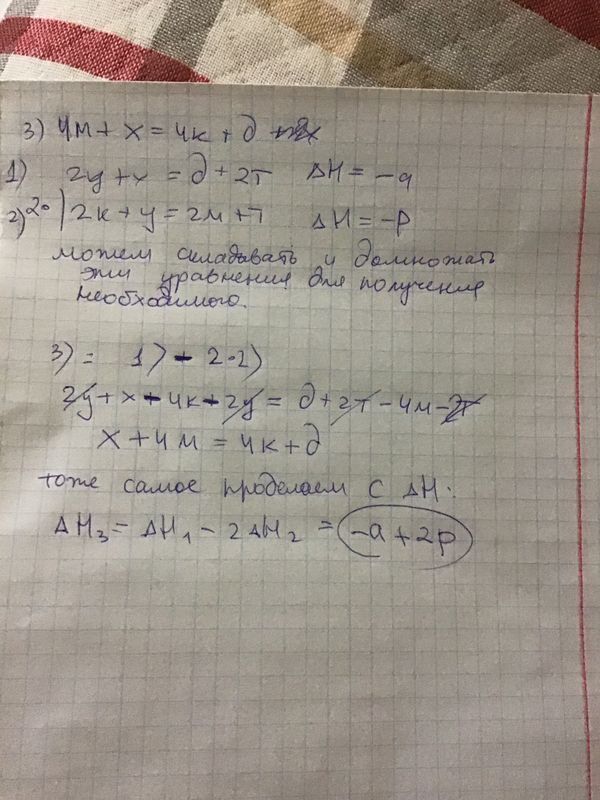 3) 4м + х = 4к + д
1) 2у + х = д + 2т ΔH = -a
2) 2· | 2к + у = 2м + т ΔH = -p
можем складывать и домножать
эти уравнения для получения
необходимого.
3) = 1) - 2·2)
2у + х - 4к - 2у = д + 2т - 4м - 2т
х + 4м = 4к + д
тоже самое проделаем с ΔH:
ΔH₃ = ΔH₁ - 2ΔH₂ = -a + 2p